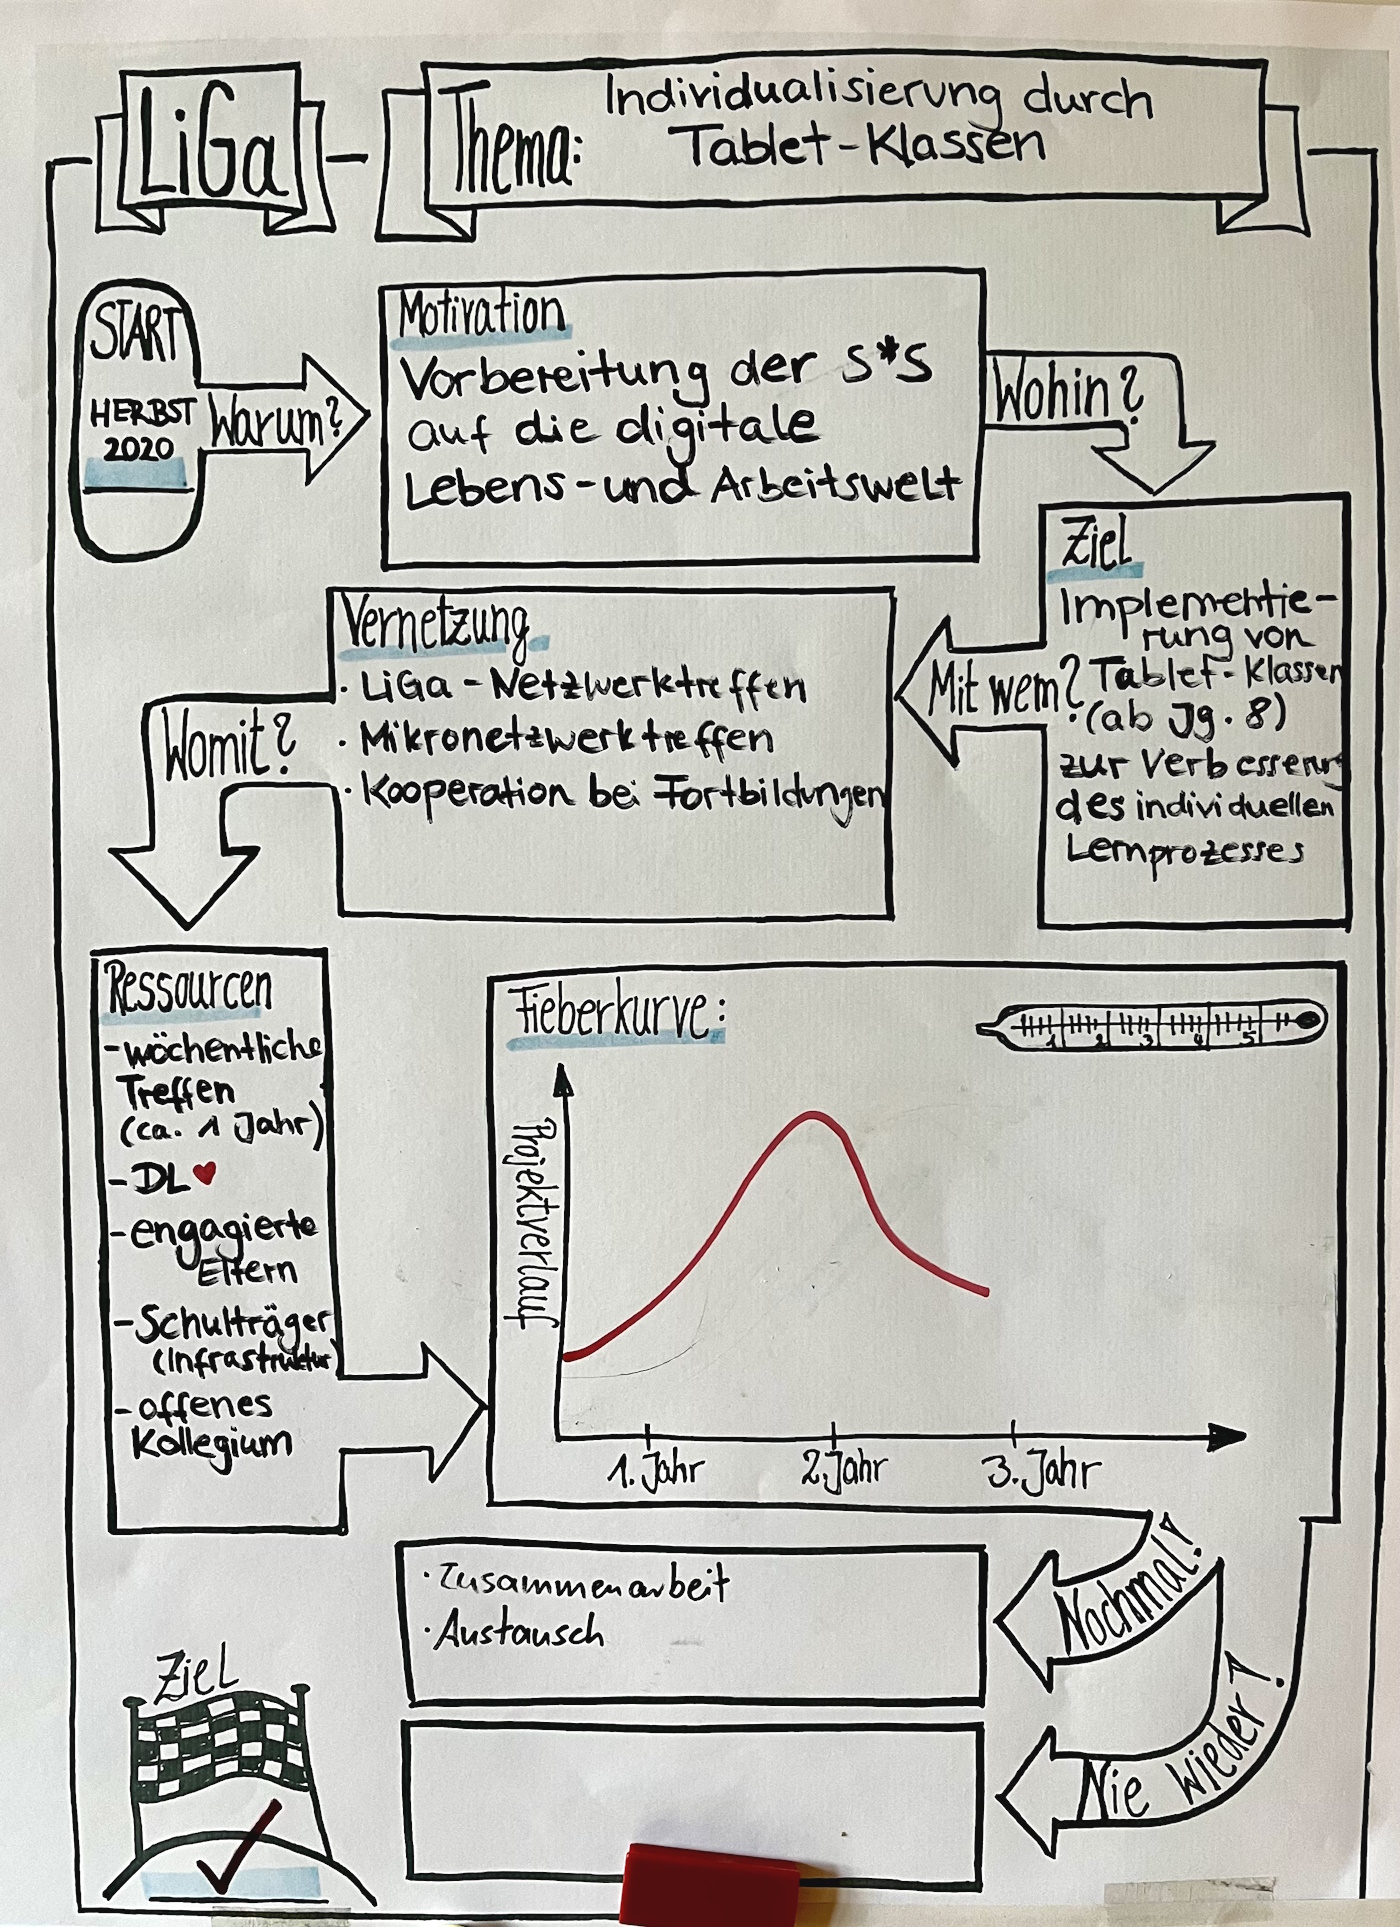 LiGa
Thema:
Individualisierung durch
Tablet-Klassen
START
HERBST
2020
Warum?
Motivation
Vorbereitung der S*S
auf die digitale
Lebens- und Arbeitswelt
Wohin?
Ziel
Implementie-
rung von
Tablet-Klassen
(ab Jg. 8)
zur Verbesserung
des individuellen
Lernprozesses
Mit wem?
Vernetzung
· LiGa - Netzwerktreffen
· Mikronetzwerktreffen
· Kooperation bei Fortbildungen
Womit?
Ressourcen
- wöchentliche
Treffen
(ca. 1 Jahr)
- DL ♥
- engagierte
Eltern
- Schulträger
(Infrastruktur)
- offenes
Kollegium
Fieberkurve:
1 2 3 4 5
Projektverlauf
1. Jahr 2. Jahr 3. Jahr
Nochmal!
· Zusammenarbeit
· Austausch
Nie wieder!
Ziel